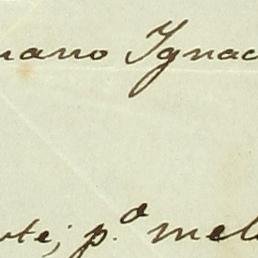 mano Ignac
te; p.º mel